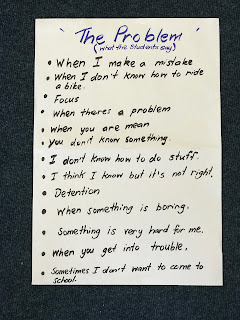 ' The Problem '
(what the students say)
• When I make a mistake
• When I don't know how to ride
a bike.
• Focus
• When theres a problem
• When you are mean
• You don't know something.
• I don't know how to do stuff.
• I think I know but it's not right.
• Detention
• When something is boring.
• Something is very hard for me.
• When you get into trouble.
• Sometimes I don't want to come to
school.